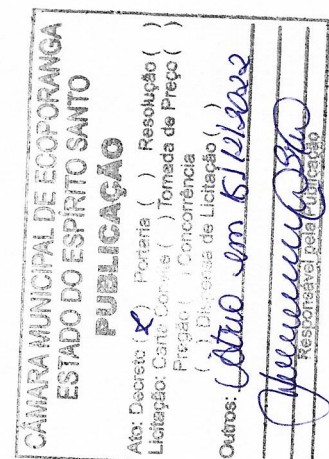 CÂMARA MUNICIPAL DE ECOPORANGA
ESTADO DO ESPÍRITO SANTO
PUBLICAÇÃO
Ato: Decreto (X) Portaria ( ) Resolução ( )
Licitação: Carta Convite ( ) Tomada de Preço ( )
Pregão ( ) Concorrência
( ) Dispensa de Licitação ( )
Outros: Átrio em
Responsável pela Publicação